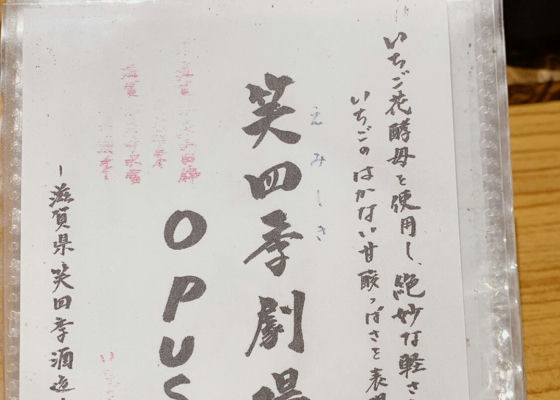 いちご花酵母を使用し、絶妙な軽さ
いちごのはかない甘酸っぱさを表現
えみしき
笑四季劇場
OPUS
-滋賀県笑四季酒造